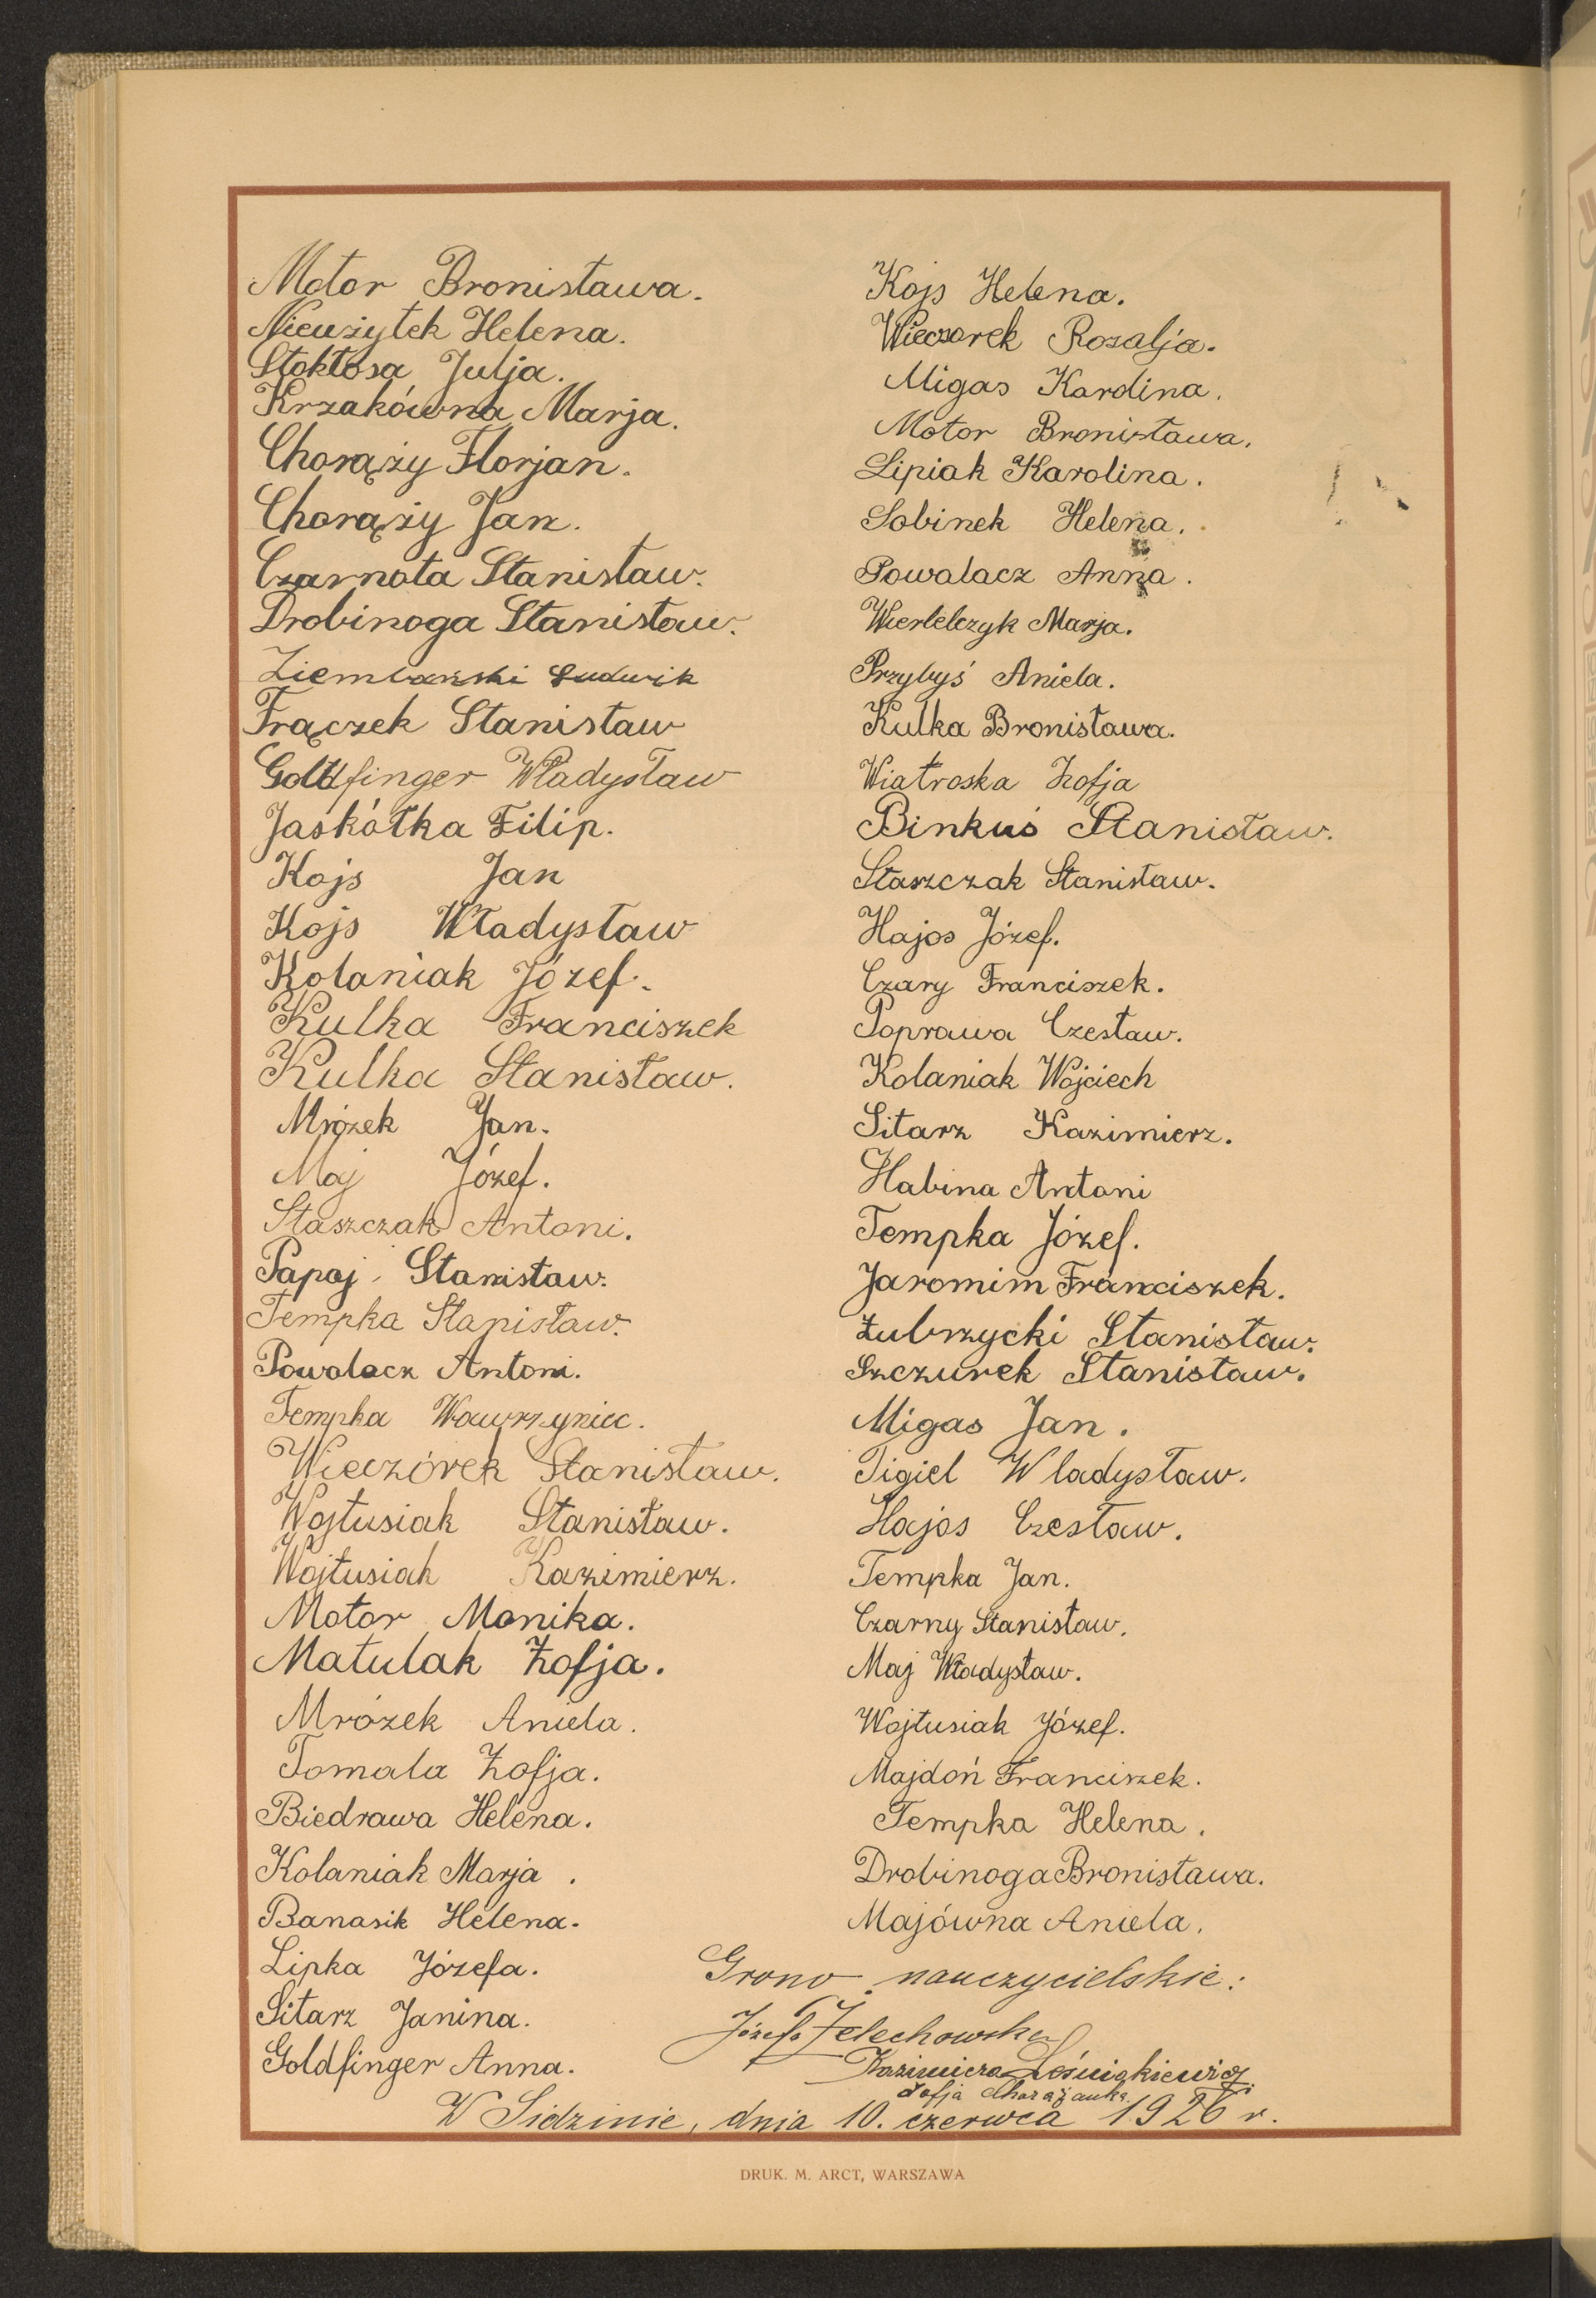 Motor Bronisława.
Nieużytek Helena.
Stokłosa Julja.
Krzakówna Marja.
Chorąży Florjan.
Chorąży Jan.
Czarnota Stanisław.
Drobinoga Stanisław.
Ziembański Ludwik
Frączek Stanisław
Goldfinger Władysław
Jaskółka Filip.
Kojs Jan
Kojs Władysław
Kolaniak Józef.
Kulka Franciszek
Kulka Stanisław.
Mrózek Jan.
Maj Józef.
Staszczak Antoni.
Papaj Stanisław.
Tempka Stanisław.
Powalacz Antoni.
Tempka Wawrzyniec.
Wieczórek Stanisław.
Wojtusiak Stanisław.
Wojtusiak Kazimierz.
Motor Monika.
Matulak Zofja.
Mrózek Aniela.
Tomala Zofja.
Biedrawa Helena.
Kolaniak Marja.
Banasik Helena.
Lipka Józefa.
Sitarz Janina.
Goldfinger Anna.
Kojs Helena.
Wieczorek Rozalja.
Migas Karolina.
Motor Bronisława.
Lipiak Karolina.
Sobinek Helena.
Powalacz Anna.
Wiertelczyk Marja.
Przybyś Aniela.
Kulka Bronisława.
Wiatroska Zofja
Binkuś Stanisław.
Staszczak Stanisław.
Hajos Józef.
Czary Franciszek.
Poprawa Czesław.
Kolaniak Wojciech
Sitarz Kazimierz.
Habina Antoni
Tempka Józef.
Jaromim Franciszek.
Zubrzycki Stanisław.
Szczurek Stanisław.
Migas Jan.
Tigiel Wladysław.
Hajos Czesław.
Tempka Jan.
Czarny Stanisław.
Maj Władysław.
Wojtusiak Józef.
Majdoń Franciszek.
Tempka Helena.
Drobinoga Bronisława.
Majówna Aniela.
Grono nauczycielskie:
Józefa Żelechowska
Kazimiera Leśniakiewicz.
Zofja Chorążanka.
W Sidzinie, dnia 10. czerwca 1926 r.
DRUK. M. ARCT, WARSZAWA